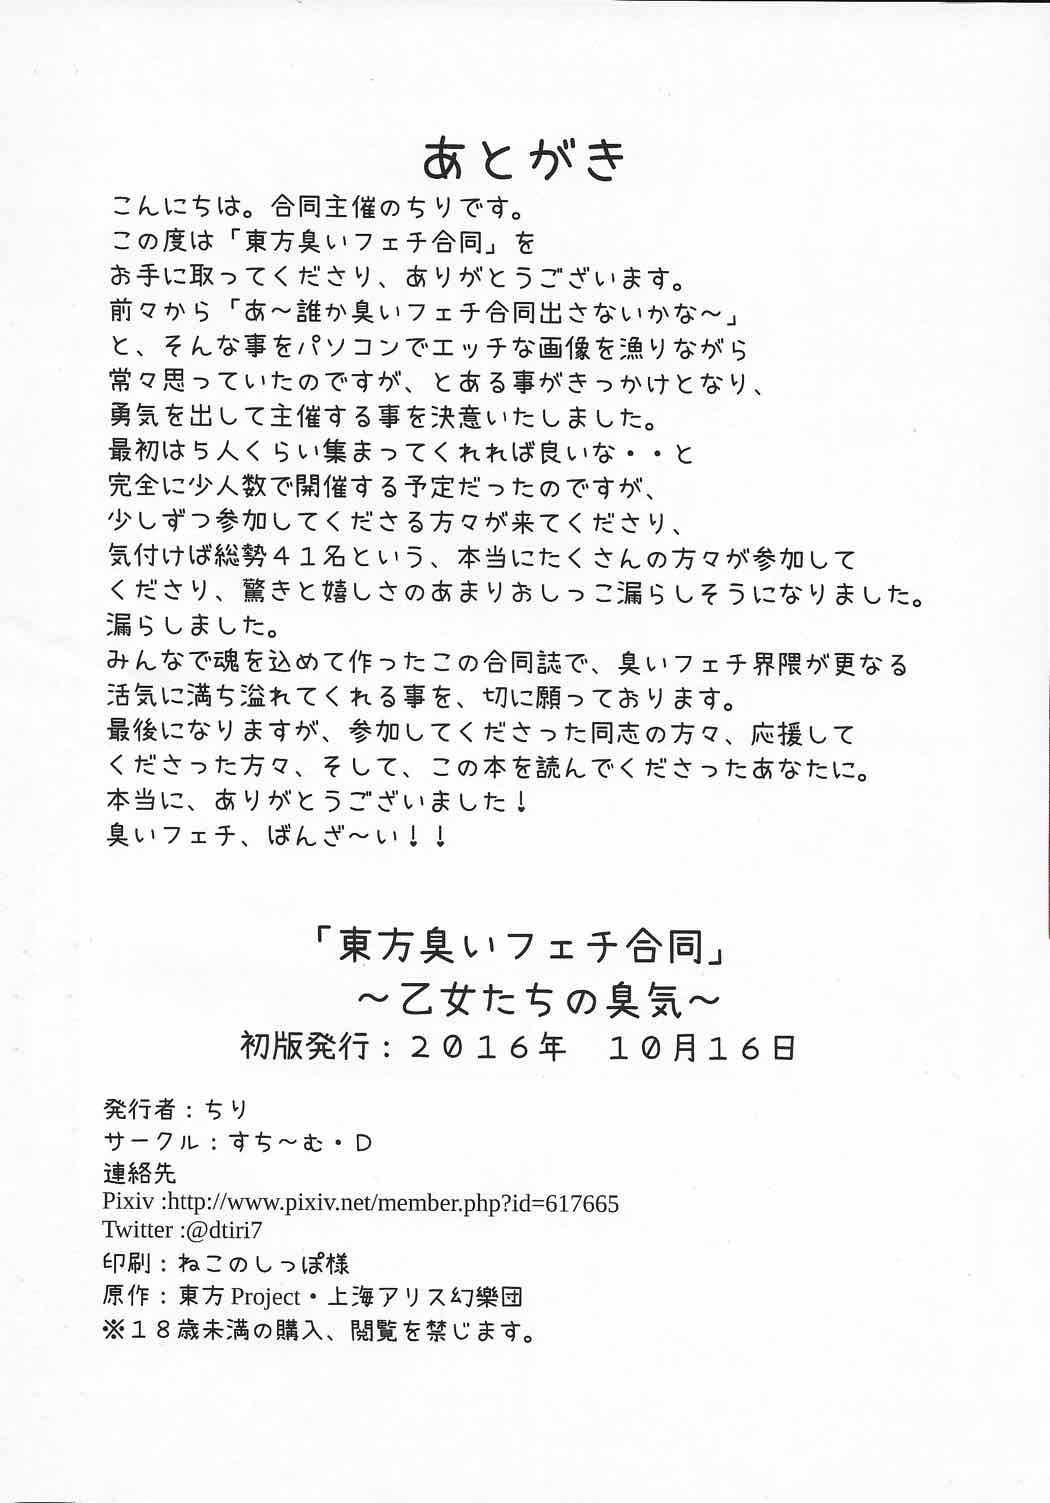 あとがき
こんにちは。合同主催のちりです。
この度は「東方臭いフェチ合同」を
お手に取ってくださり、ありがとうございます。
前々から「あ～誰か臭いフェチ合同出さないかな～」
と、そんな事をパソコンでエッチな画像を漁りながら
常々思っていたのですが、とある事がきっかけとなり、
勇気を出して主催する事を決意いたしました。
最初は５人くらい集まってくれれば良いな・・と
完全に少人数で開催する予定だったのですが、
少しずつ参加してくださる方々が来てくださり、
気付けば総勢４１名という、本当にたくさんの方々が参加して
くださり、驚きと嬉しさのあまりおしっこ漏らしそうになりました。
漏らしました。
みんなで魂を込めて作ったこの合同誌で、臭いフェチ界隈が更なる
活気に満ち溢れてくれる事を、切に願っております。
最後になりますが、参加してくださった同志の方々、応援して
くださった方々、そして、この本を読んでくださったあなたに。
本当に、ありがとうございました！
臭いフェチ、ばんざ～い！！
「東方臭いフェチ合同」
～乙女たちの臭気～
初版発行：２０１６年　１０月１６日
発行者：ちり
サークル：すち～む・Ｄ
連絡先
Pixiv :http://www.pixiv.net/member.php?id=617665
Twitter :@dtiri7
印刷：ねこのしっぽ様
原作：東方Project・上海アリス幻樂団
※１８歳未満の購入、閲覧を禁じます。